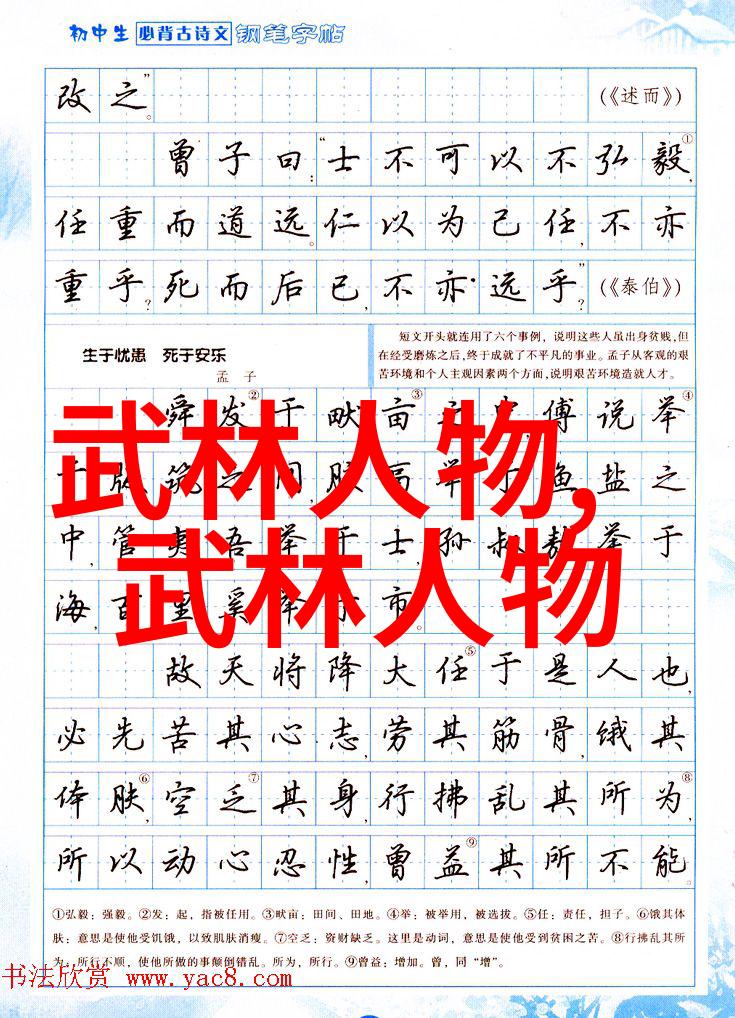 初中生 必背古诗文 钢笔字帖
改之。” (《述而》)
曾子曰：“士不可以不弘毅①，
任重而道远。仁以为己任，不亦
重乎？死而后已，不亦远乎？” (《泰伯》)
生于忧患 死于安乐
孟子
短文开头就连用了六个事例，说明这些人虽出身贫贱，但
在经受磨炼之后，终于成就了不平凡的事业。孟子从客观的艰
苦环境和个人主观因素两个方面，说明艰苦环境造就人才。
舜发②于畎亩③之中，傅说举④
于版筑之间，胶鬲举于鱼盐之
中，管夷吾举于士，孙叔敖举于
海，百里奚举于市。
武林人物，
武林人物
故天将降大任⑤于是人也，
必先苦其心志，劳其筋骨，饿其
体肤⑥，空乏⑦其身，行拂乱其所为⑧，
所以动心忍性，曾益⑨其所不能。
①弘毅：强毅。②发：起，指被任用。③畎亩：田间、田地。④举：被举用，被选拔。⑤任：责任，担子。⑥饿其体
肤：意思是使他受饥饿，以致肌肤消瘦。⑦空乏：资财缺乏。这里是动词，意思是使他受到贫困之苦。⑧行拂乱其所
为：所行不顺，使他所做的事颠倒错乱。所为，所行。⑨曾益：增加。曾，同“增”。
书法欣赏 www.yac8.com